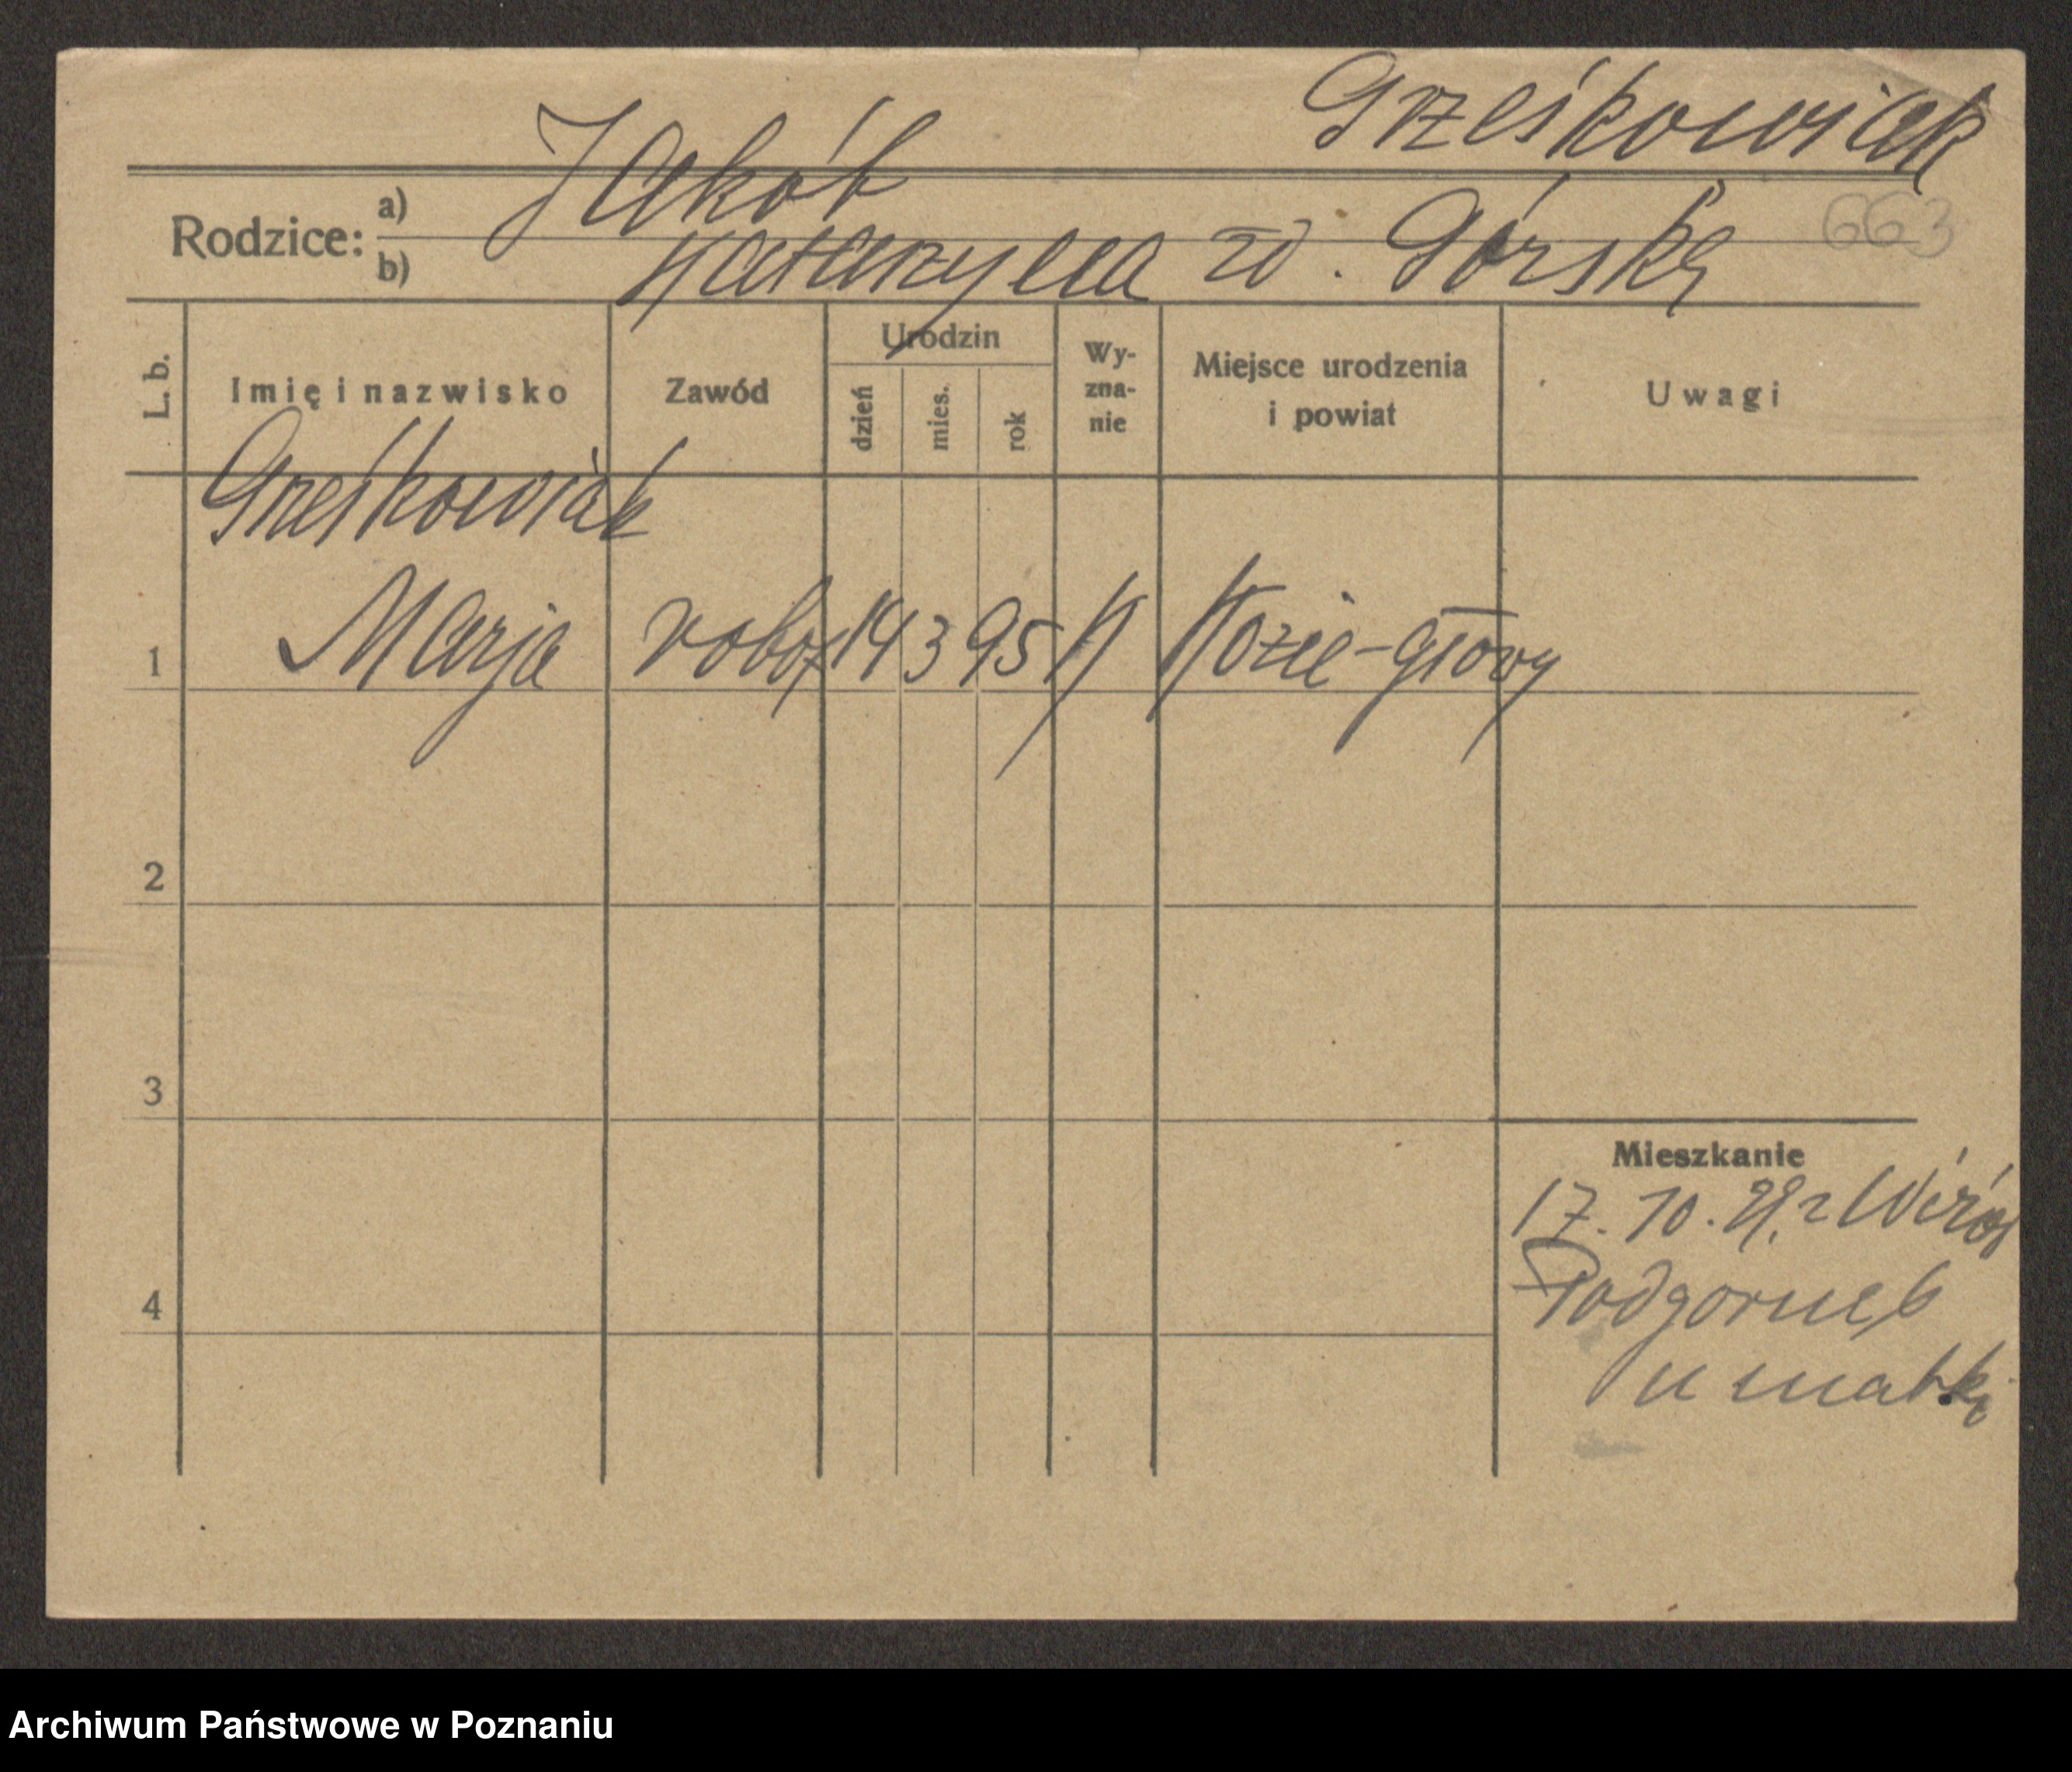 Grześkowiak
Rodzice: a) Jakób
b) Katarzyna zd. Górska
663
L. b.
Imię i nazwisko
Zawód
Urodzin
dzień
mies.
rok
Wy-
zna-
nie
Miejsce urodzenia
i powiat
Uwagi
Grześkowiak
1 Marja robot 14 3 95 K Kozie-głowy
2
3
4
Mieszkanie
17. 10. z
Podgórne 6
u matki
Archiwum Państwowe w Poznaniu